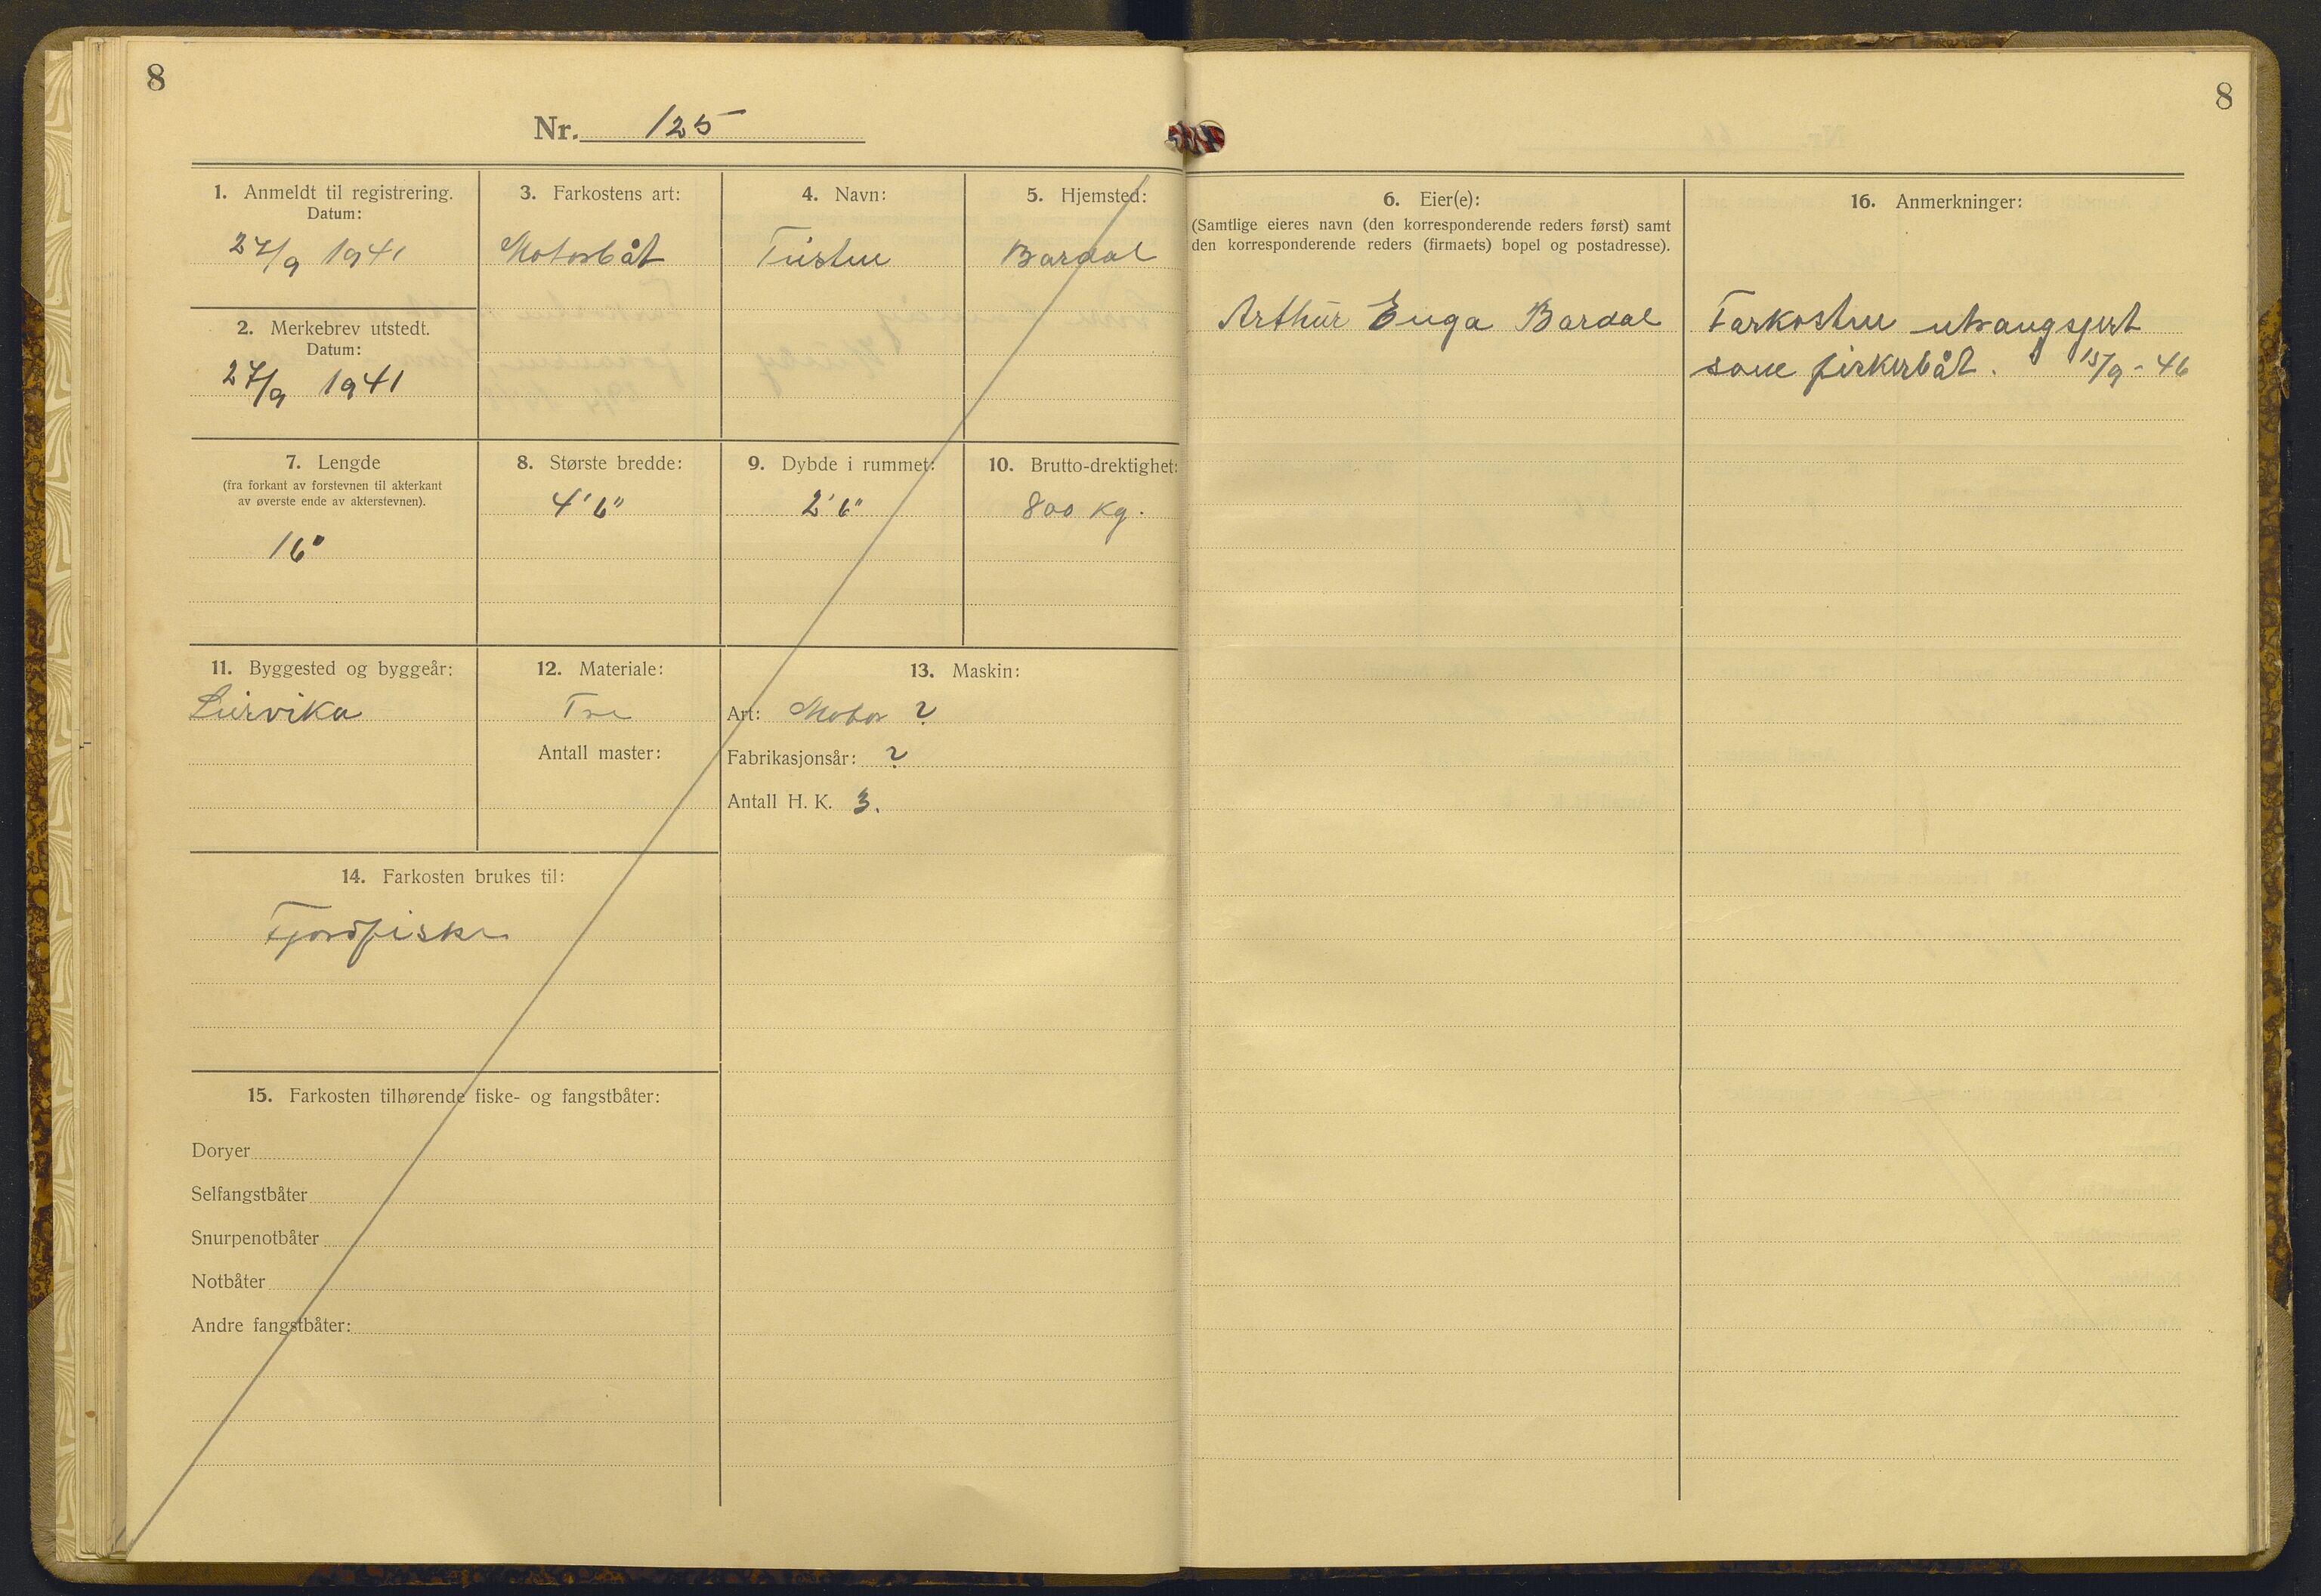 8
8
Nr. 125
1. Anmeldt til registrering.
Datum:
27/9 1941
2. Merkebrev utstedt.
Datum:
27/9 1941
3. Farkostens art:
Motorbåt
4. Navn:
5. Hjemsted:
Bardal
6. Eier(e):
(Samtlige eieres navn (den korresponderende reders først) samt
den korresponderende reders (firmaets) bopel og postadresse).
Arthur Enga Bardal
16. Anmerkninger:
Farkosten utrangsjert
som fiskerbåt. 15/9-46
7. Lengde
(fra forkant av forstevnen til akterkant
av øverste ende av akterstevnen).
16'
8. Største bredde:
4'6"
9. Dybde i rummet:
2'6"
10. Brutto-drektighet:
800 kg.
11. Byggested og byggeår:
12. Materiale:
Tre
Antall master:
13. Maskin:
Art: Motor ?
Fabrikasjonsår: ?
Antall H. K. 3.
14. Farkosten brukes til:
Fjordfiske
15. Farkosten tilhørende fiske- og fangstbåter:
Doryer
Selfangstbåter
Snurpenotbåter
Notbåter
Andre fangstbåter: